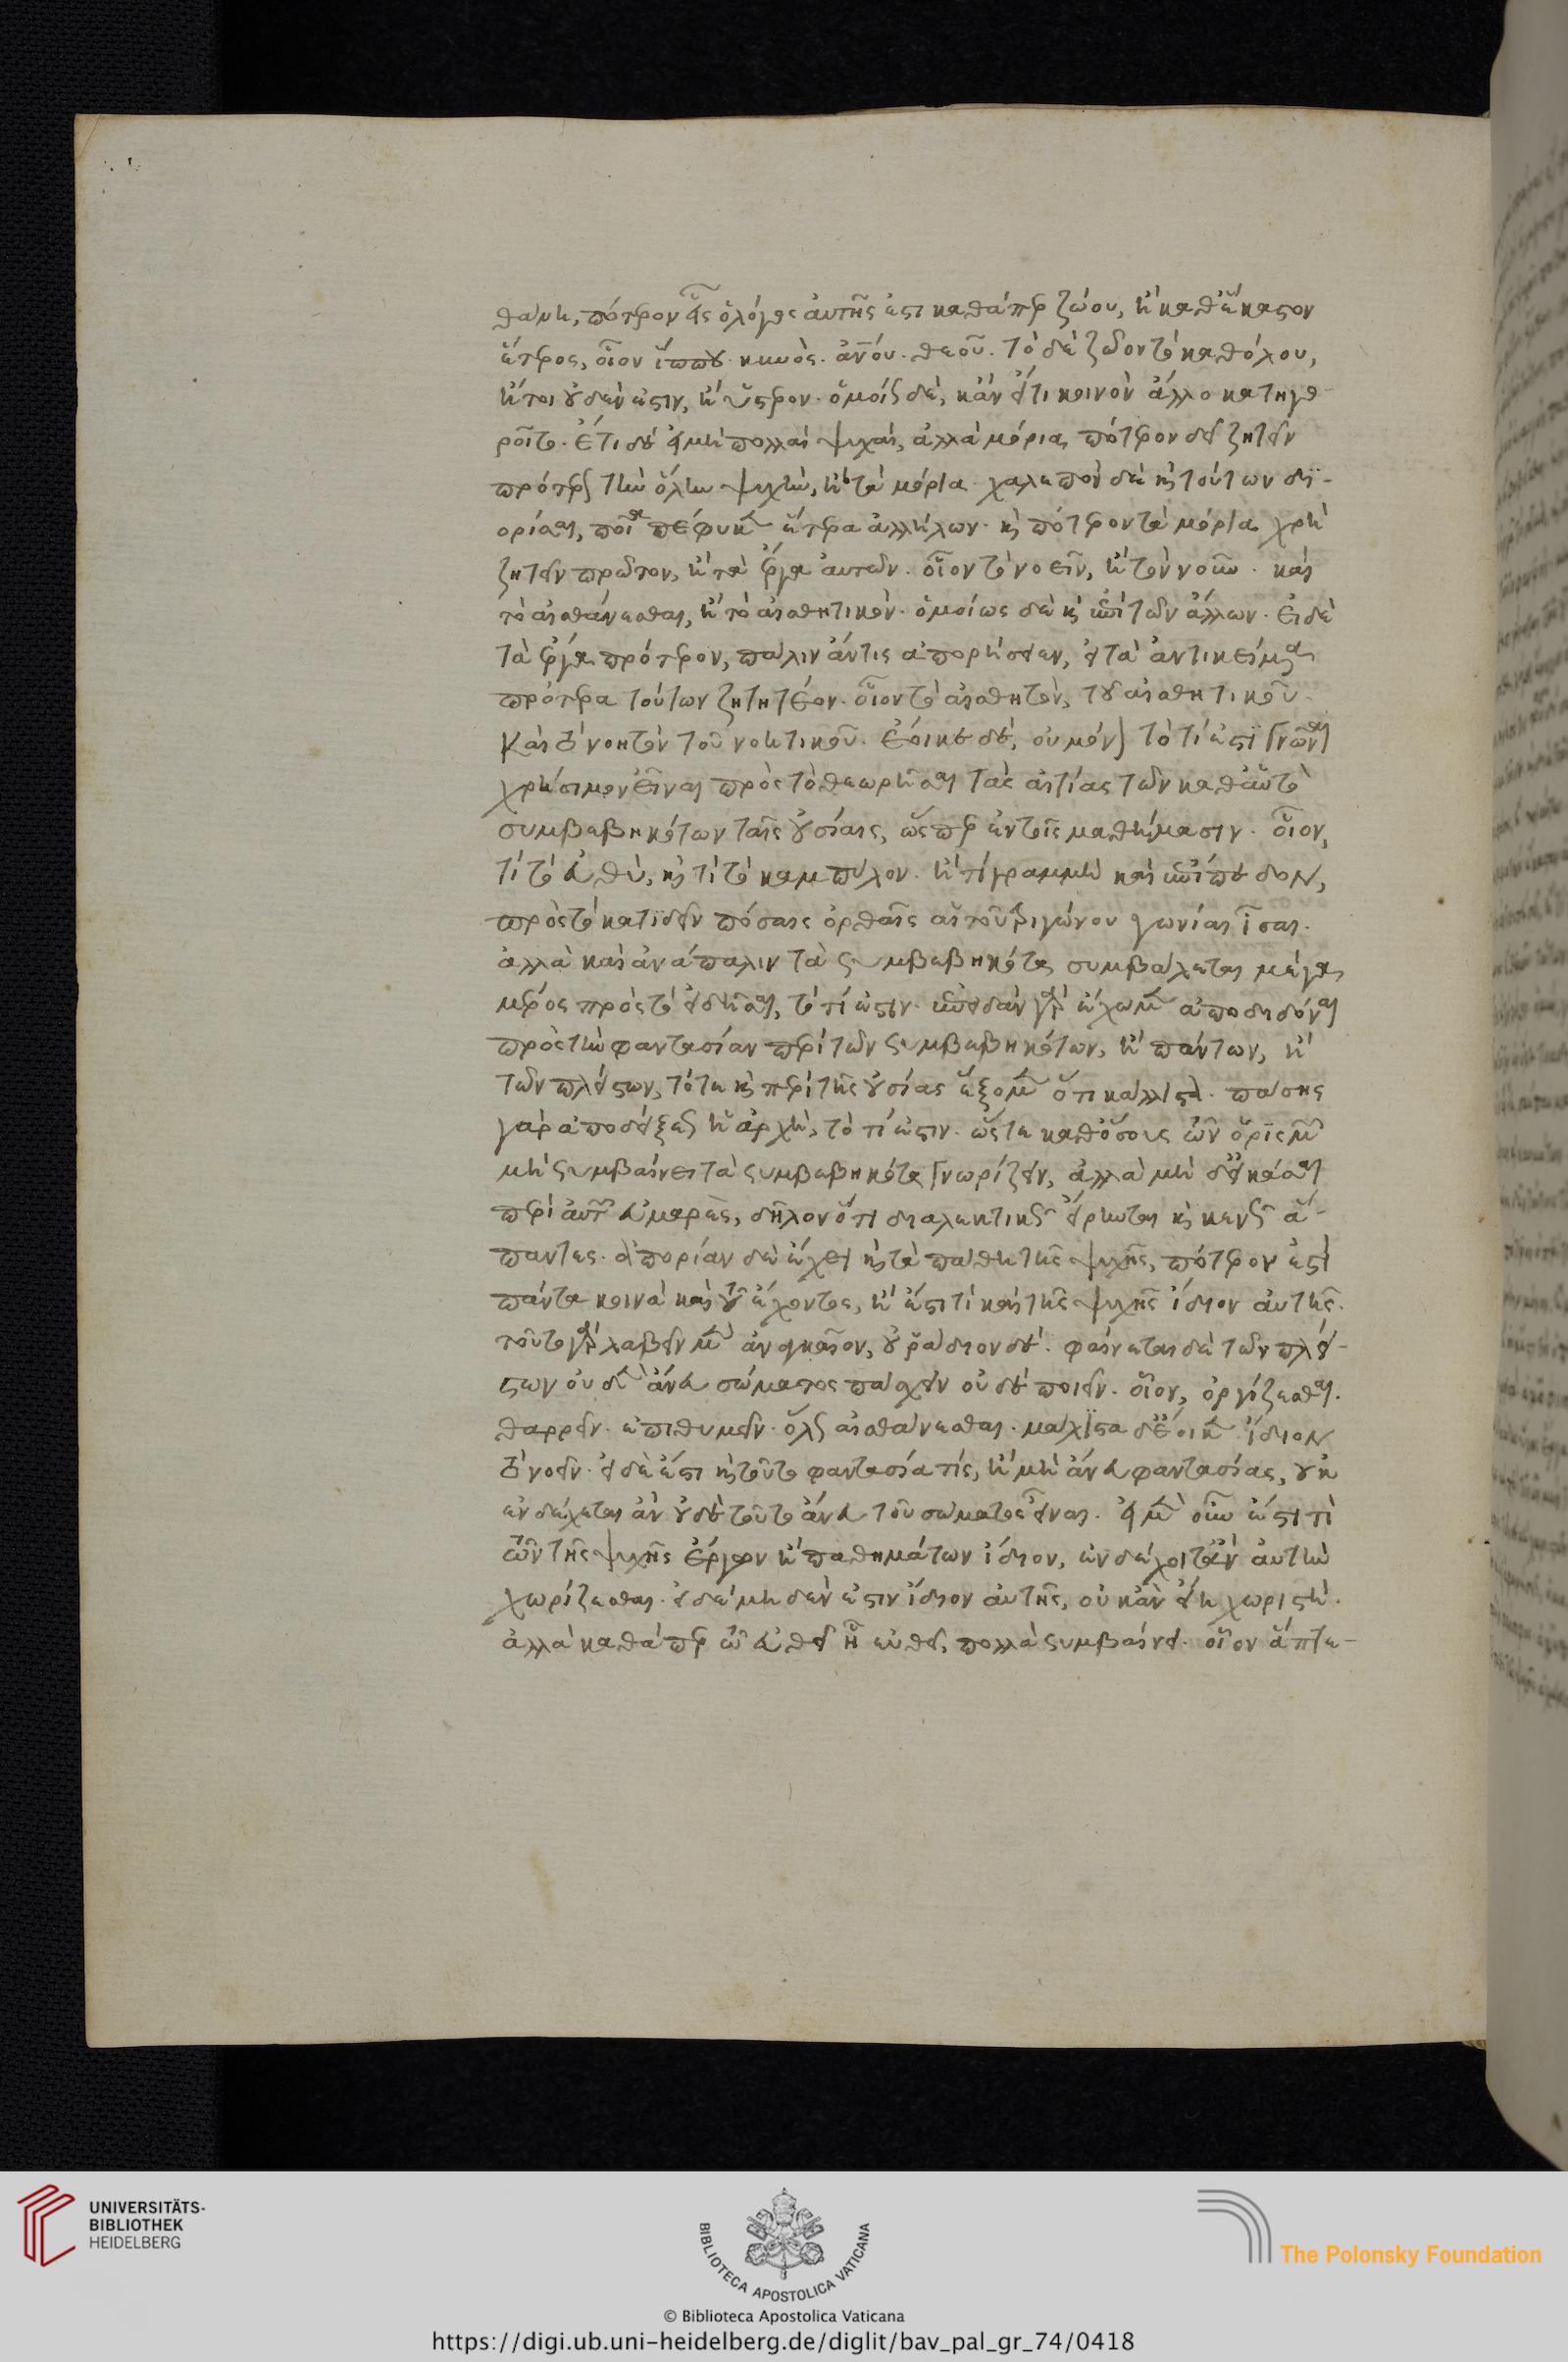 θάνη, πότερον εἷς ὁ λόγος αὐτῆς ἐστι καθάπερ ζώου, ἢ καθ' ἕκαστον
ἕτερος, οἷον ἵππου. κυνὸς. ἀνου. θεοῦ. τὸ δὲ ζῶον τὸ καθόλου,
ἤτοι οὐδέν ἐστιν, ἢ ὕστερον. ὁμοίως δὲ, κἂν εἴ τι κοινὸν ἄλλο κατηγο-
ροῖτο. ἔτι δὲ εἰ μὴ πολλαὶ ψυχαὶ, ἀλλὰ μόρια, πότερον δεῖ ζητεῖν
πρότερον τὴν ὅλην ψυχὴν, ἢ τὰ μόρια. χαλεπὸν δὲ καὶ τούτων δι-
ορίσαι, ποῖα πέφυκεν ἕτερα ἀλλήλων. καὶ πότερον τὰ μόρια χρὴ
ζητεῖν πρῶτον, ἢ τὰ ἔργα αὐτῶν. οἷον τὸ νοεῖν, ἢ τὸν νοῦν. καὶ
τὸ αἰσθάνεσθαι, ἢ τὸ αἰσθητικόν. ὁμοίως δὲ καὶ ἐπὶ τῶν ἄλλων. εἰ δὲ
τὰ ἔργα πρότερον, πάλιν ἄν τις ἀπορήσειεν, εἰ τὰ ἀντικείμενα
πρότερα τούτων ζητητέον. οἷον τὸ αἰσθητὸν, τοῦ αἰσθητικοῦ.
καὶ τὸ νοητὸν τοῦ νοητικοῦ. ἔοικε δὲ, οὐ μόνον τὸ τί ἐστι γνῶναι
χρήσιμον εἶναι πρὸς τὸ θεωρῆσαι τὰς αἰτίας τῶν καθ' αὑτὸ
συμβεβηκότων ταῖς οὐσίαις, ὥσπερ ἐν τοῖς μαθήμασιν. οἷον,
τί τὸ εὐθὺ, καὶ τί τὸ καμπύλον. ἢ τί γραμμὴ καὶ ἐπίπεδον,
πρὸς τὸ κατιδεῖν πόσαις ὀρθαῖς αἱ τοῦ τριγώνου γωνίαι ἴσαι.
ἀλλὰ καὶ ἀνάπαλιν τὰ συμβεβηκότα συμβάλεται μέγα
μέρος πρὸς τὸ εἰδῆσαι, τὸ τί ἐστιν. ἐπειδὰν γὰρ ἔχωμεν ἀποδιδόναι
πρὸς τὴν φαντασίαν περὶ τῶν συμβεβηκότων, ἢ πάντων, ἢ
τῶν πλείστων, τότε καὶ περὶ τῆς οὐσίας ἕξομεν ὅτι κάλλιστα. πάσης
γὰρ ἀποδείξεως ἡ ἀρχὴ, τὸ τί ἐστιν. ὥστε καθ' ὅσους τῶν ὁρισμῶν
μὴ συμβαίνει τὰ συμβεβηκότα γνωρίζειν, ἀλλὰ μὴ δ' εἰκάσαι
περὶ αὐτῶν εὐμαρὲς, δῆλον ὅτι διαλεκτικῶς εἴρηνται καὶ κενῶς ἅ-
παντες. ἀπορίαν δὲ ἔχει καὶ τὰ πάθη τῆς ψυχῆς, πότερον ἐστὶ
πάντα κοινὰ καὶ τοῦ ἔχοντος, ἢ ἔστι τὶ καὶ τῆς ψυχῆς ἴδιον αὐτῆς.
τοῦτο γὰρ λαβεῖν μὲν ἀναγκαῖον, οὐ ῥᾴδιον δέ. φαίνεται δὲ τῶν πλεί-
στων οὐδὲν ἄνευ σώματος πάσχειν οὐδὲ ποιεῖν. οἷον, ὀργίζεσθαι.
θαρρεῖν. ἐπιθυμεῖν. ὅλως αἰσθάνεσθαι. μάλιστα δ' ἔοικεν ἴδιον
τὸ νοεῖν. εἰ δὲ ἔστι καὶ τοῦτο φαντασία τίς, ἢ μὴ ἄνευ φαντασίας, οὐκ
ἐνδέχεται ἂν οὐδὲ τοῦτο ἄνευ τοῦ σώματος εἶναι. εἰ μὲν οὖν ἔστι τὶ
τῶν τῆς ψυχῆς ἔργων ἢ παθημάτων ἴδιον, ἐνδέχοιτ' ἂν αὐτὴν
χωρίζεσθαι. εἰ δὲ μηδέν ἐστιν ἴδιον αὐτῆς, οὐκ ἂν εἴη χωριστή.
ἀλλὰ καθάπερ τῷ εὐθεῖ ᾗ εὐθεῖ, πολλὰ συμβαίνει. οἷον ἅπτε-
UNIVERSITÄTS-
BIBLIOTHEK
HEIDELBERG
BIBLIOTECA APOSTOLICA VATICANA
The Polonsky Foundation
© Biblioteca Apostolica Vaticana
https://digi.ub.uni-heidelberg.de/diglit/bav_pal_gr_74/0418